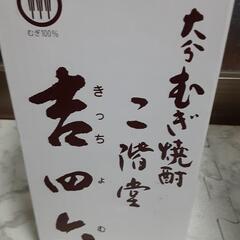 大分むぎ焼酎
二階堂
吉四六
きっちょむ
むぎ100%